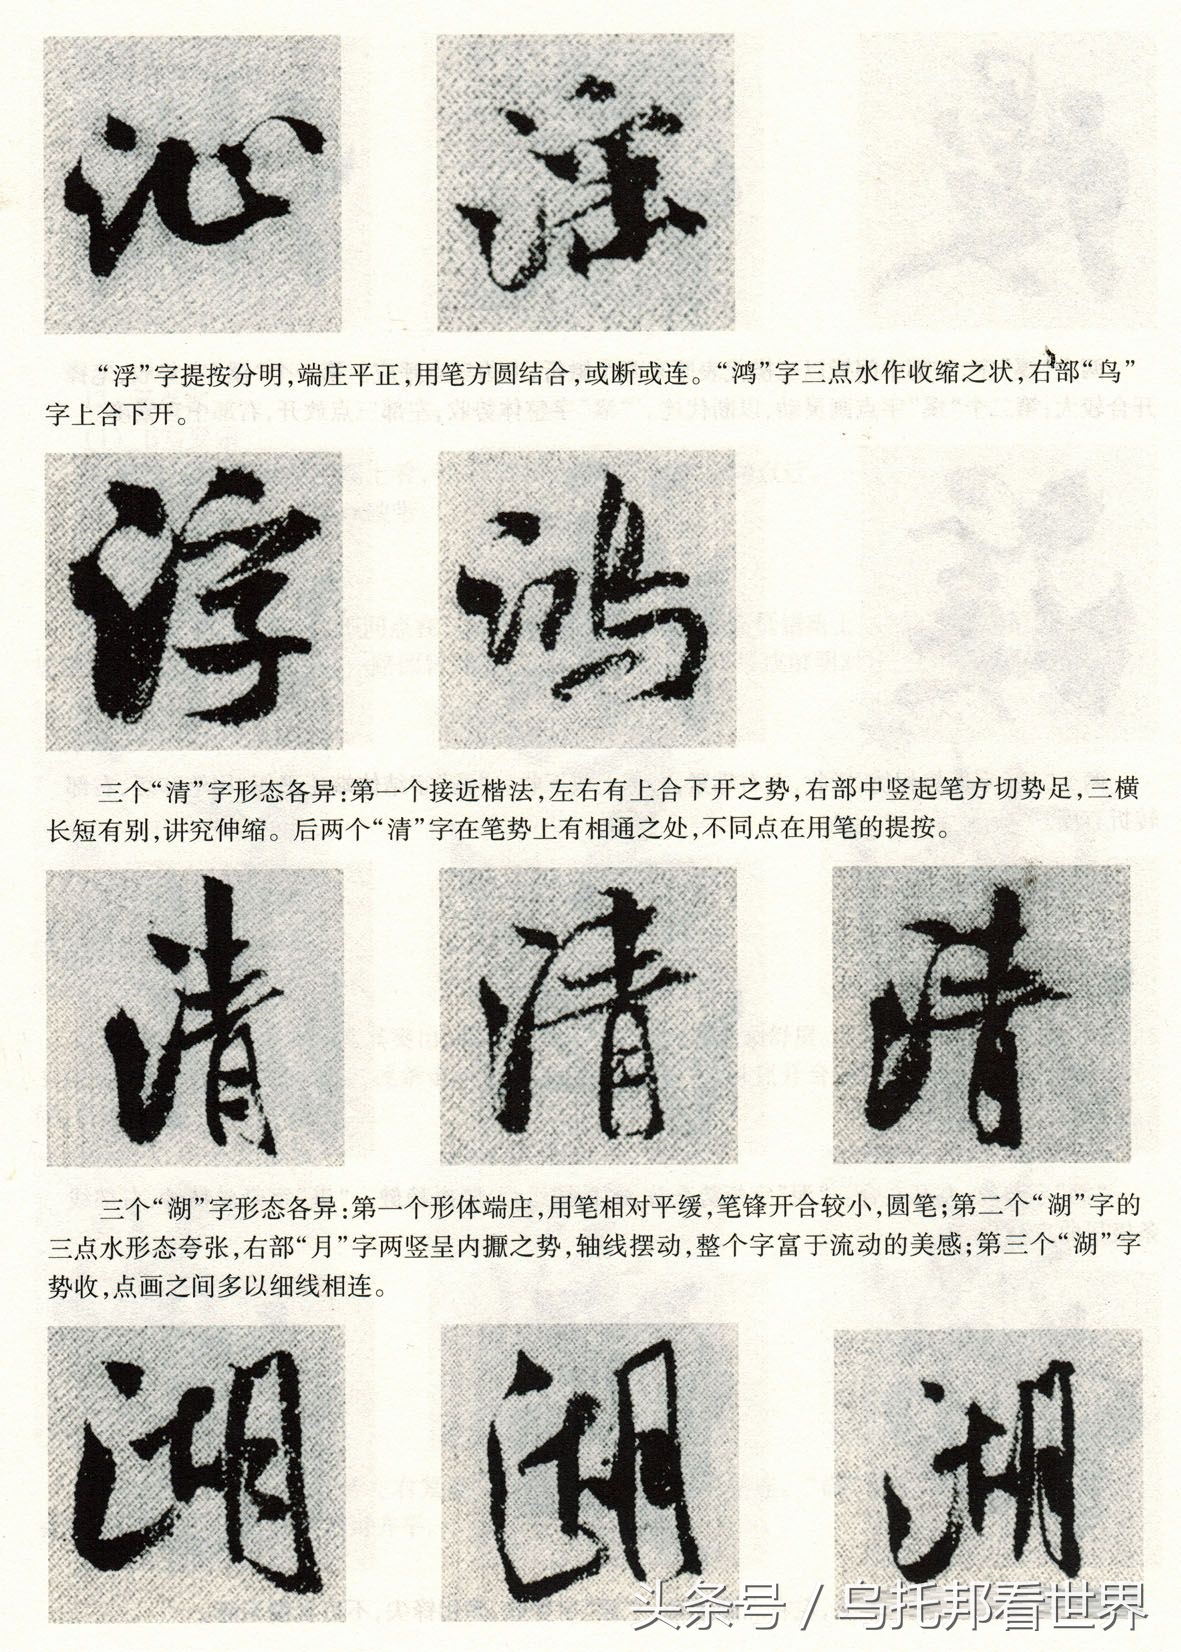 沁 深
“浮”字提按分明，端庄平正，用笔方圆结合，或断或连。“鸿”字三点水作收缩之状，右部“鸟”
字上合下开。
浮 鸿
三个“清”字形态各异：第一个接近楷法，左右有上合下开之势，右部中竖起笔方切势足，三横
长短有别，讲究伸缩。后两个“清”字在笔势上有相通之处，不同点在用笔的提按。
清 清 清
三个“湖”字形态各异：第一个形体端庄，用笔相对平缓，笔锋开合较小，圆笔；第二个“湖”字的
三点水形态夸张，右部“月”字两竖呈内擫之势，轴线摆动，整个字富于流动的美感；第三个“湖”字
势收，点画之间多以细线相连。
湖 湖 湖
头条号 / 乌托邦看世界